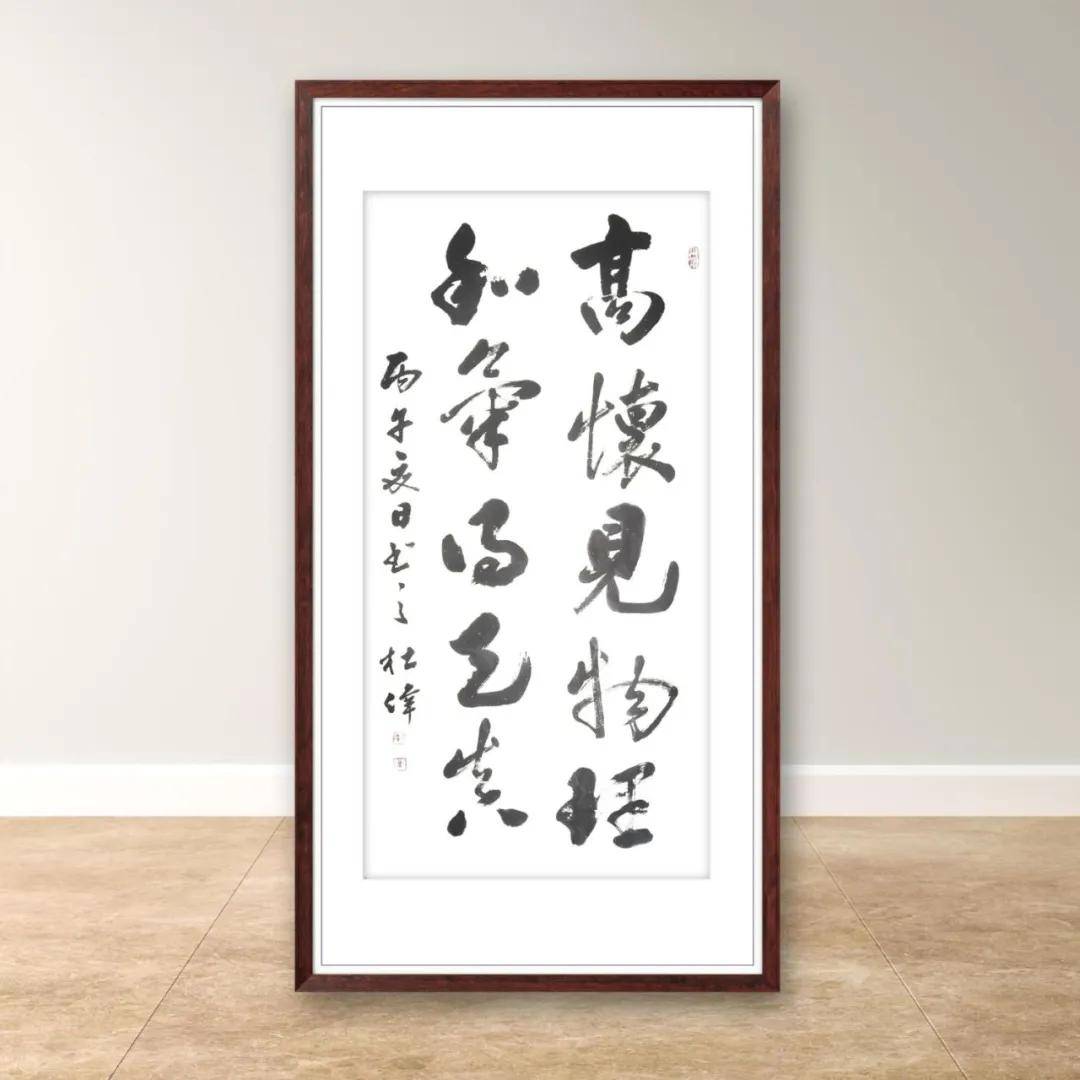 髙懷見物理
和氣得天真
丙午夏日书 杜偉